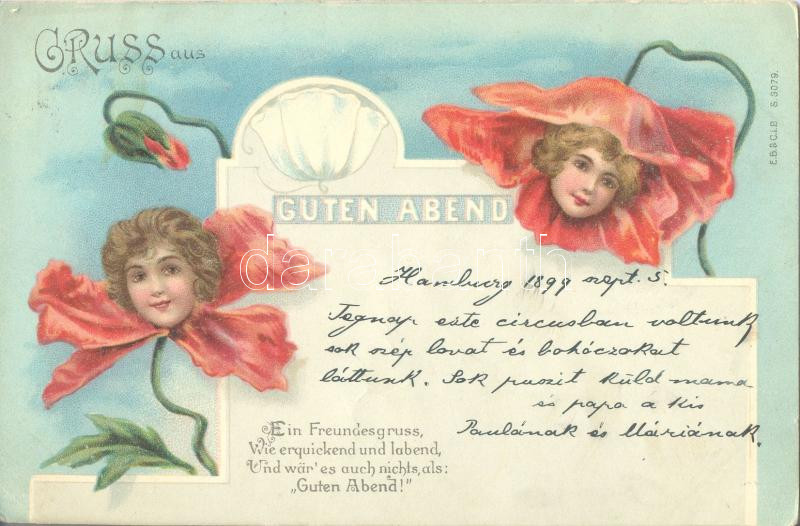 GRUSS aus
E.B.& C.i.B S. 3079.
GUTEN ABEND
darabanth
Hamburg 1899 sept. 5.
Tegnap este circusban voltunk
sok szép lovat és bohóczokat
láttunk. Sok puszit küld mama
és papa a kis
Paulának és Máriának.
Ein Freundesgruss,
Wie erquickend und labend,
Und wär' es auch nichts, als:
„Guten Abend!"